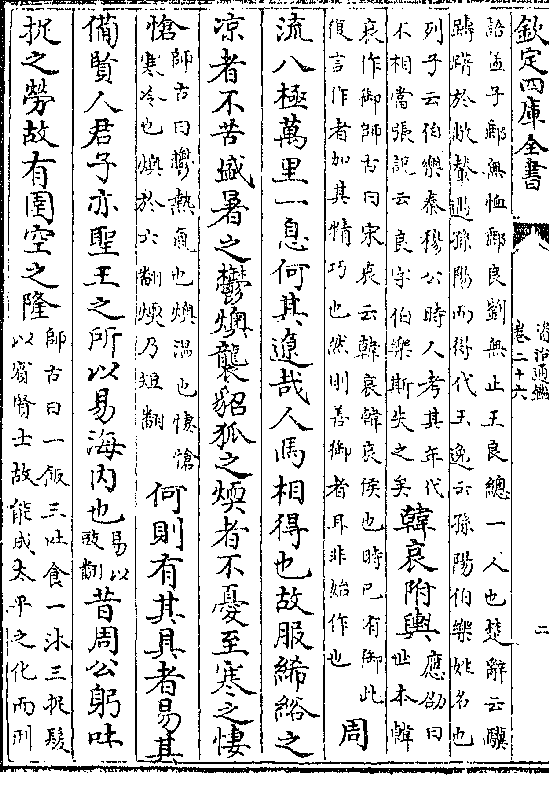 欽定四庫全書
資治通鑑
卷二十六
二
諡孟子郵無恤郵良劉無止王良總一人也楚辭云驥
躊躇於敝輂遇孫陽而得代王逸云孫陽伯樂姓名也
列子云伯樂秦穆公時人考其年代
不相當張說云良字伯樂斯失之矣
韓哀附輿
應劭曰
世本韓
哀作御師古曰宋衷云韓哀韓哀侯也時已有御此
復言作者加其精巧也然則善御者耳非始作也
周
流八極萬里一息何其遼哉人馬相得也故服絺綌之
凉者不苦盛暑之鬱燠襲貂狐之煗者不憂至寒之悽
愴
師古曰鬱熱氣也燠温也悽愴
寒冷也燠於六翻煗乃短翻
何則有其具者易其
備賢人君子亦聖王之所以易海内也
易以
豉翻
昔周公躬吐
捉之勞故有圄空之隆
師古曰一飯三吐食一沐三捉髮
以賓賢士故能成太平之化而刑